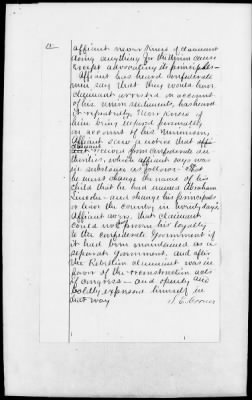 affiant never knew of claimant
doing anything for the Union cause
except advocating its principles -
Affiant has heard confederate
men say that they would have
claimant arrested on account
of his union sentiments, has heard
it repeatedly, Never knew of
him being injured personally
on account of his Unionism,
Affiant saw a notice that
claimant received from confederate au-
thorities, which affiant says was
in substance as follows - That
he must change the name of his
child that he had named Abraham
Lincoln - and change his principles
or leave the country in twenty days
Affiant says, that claimant
could not prove his loyalty
to the confederate Government if
it had been maintained as a
separate Government, and after
the Rebellion claimant was in
favor of the reconstruction acts
of congress - and openly and
boldly expressed himself in
that way